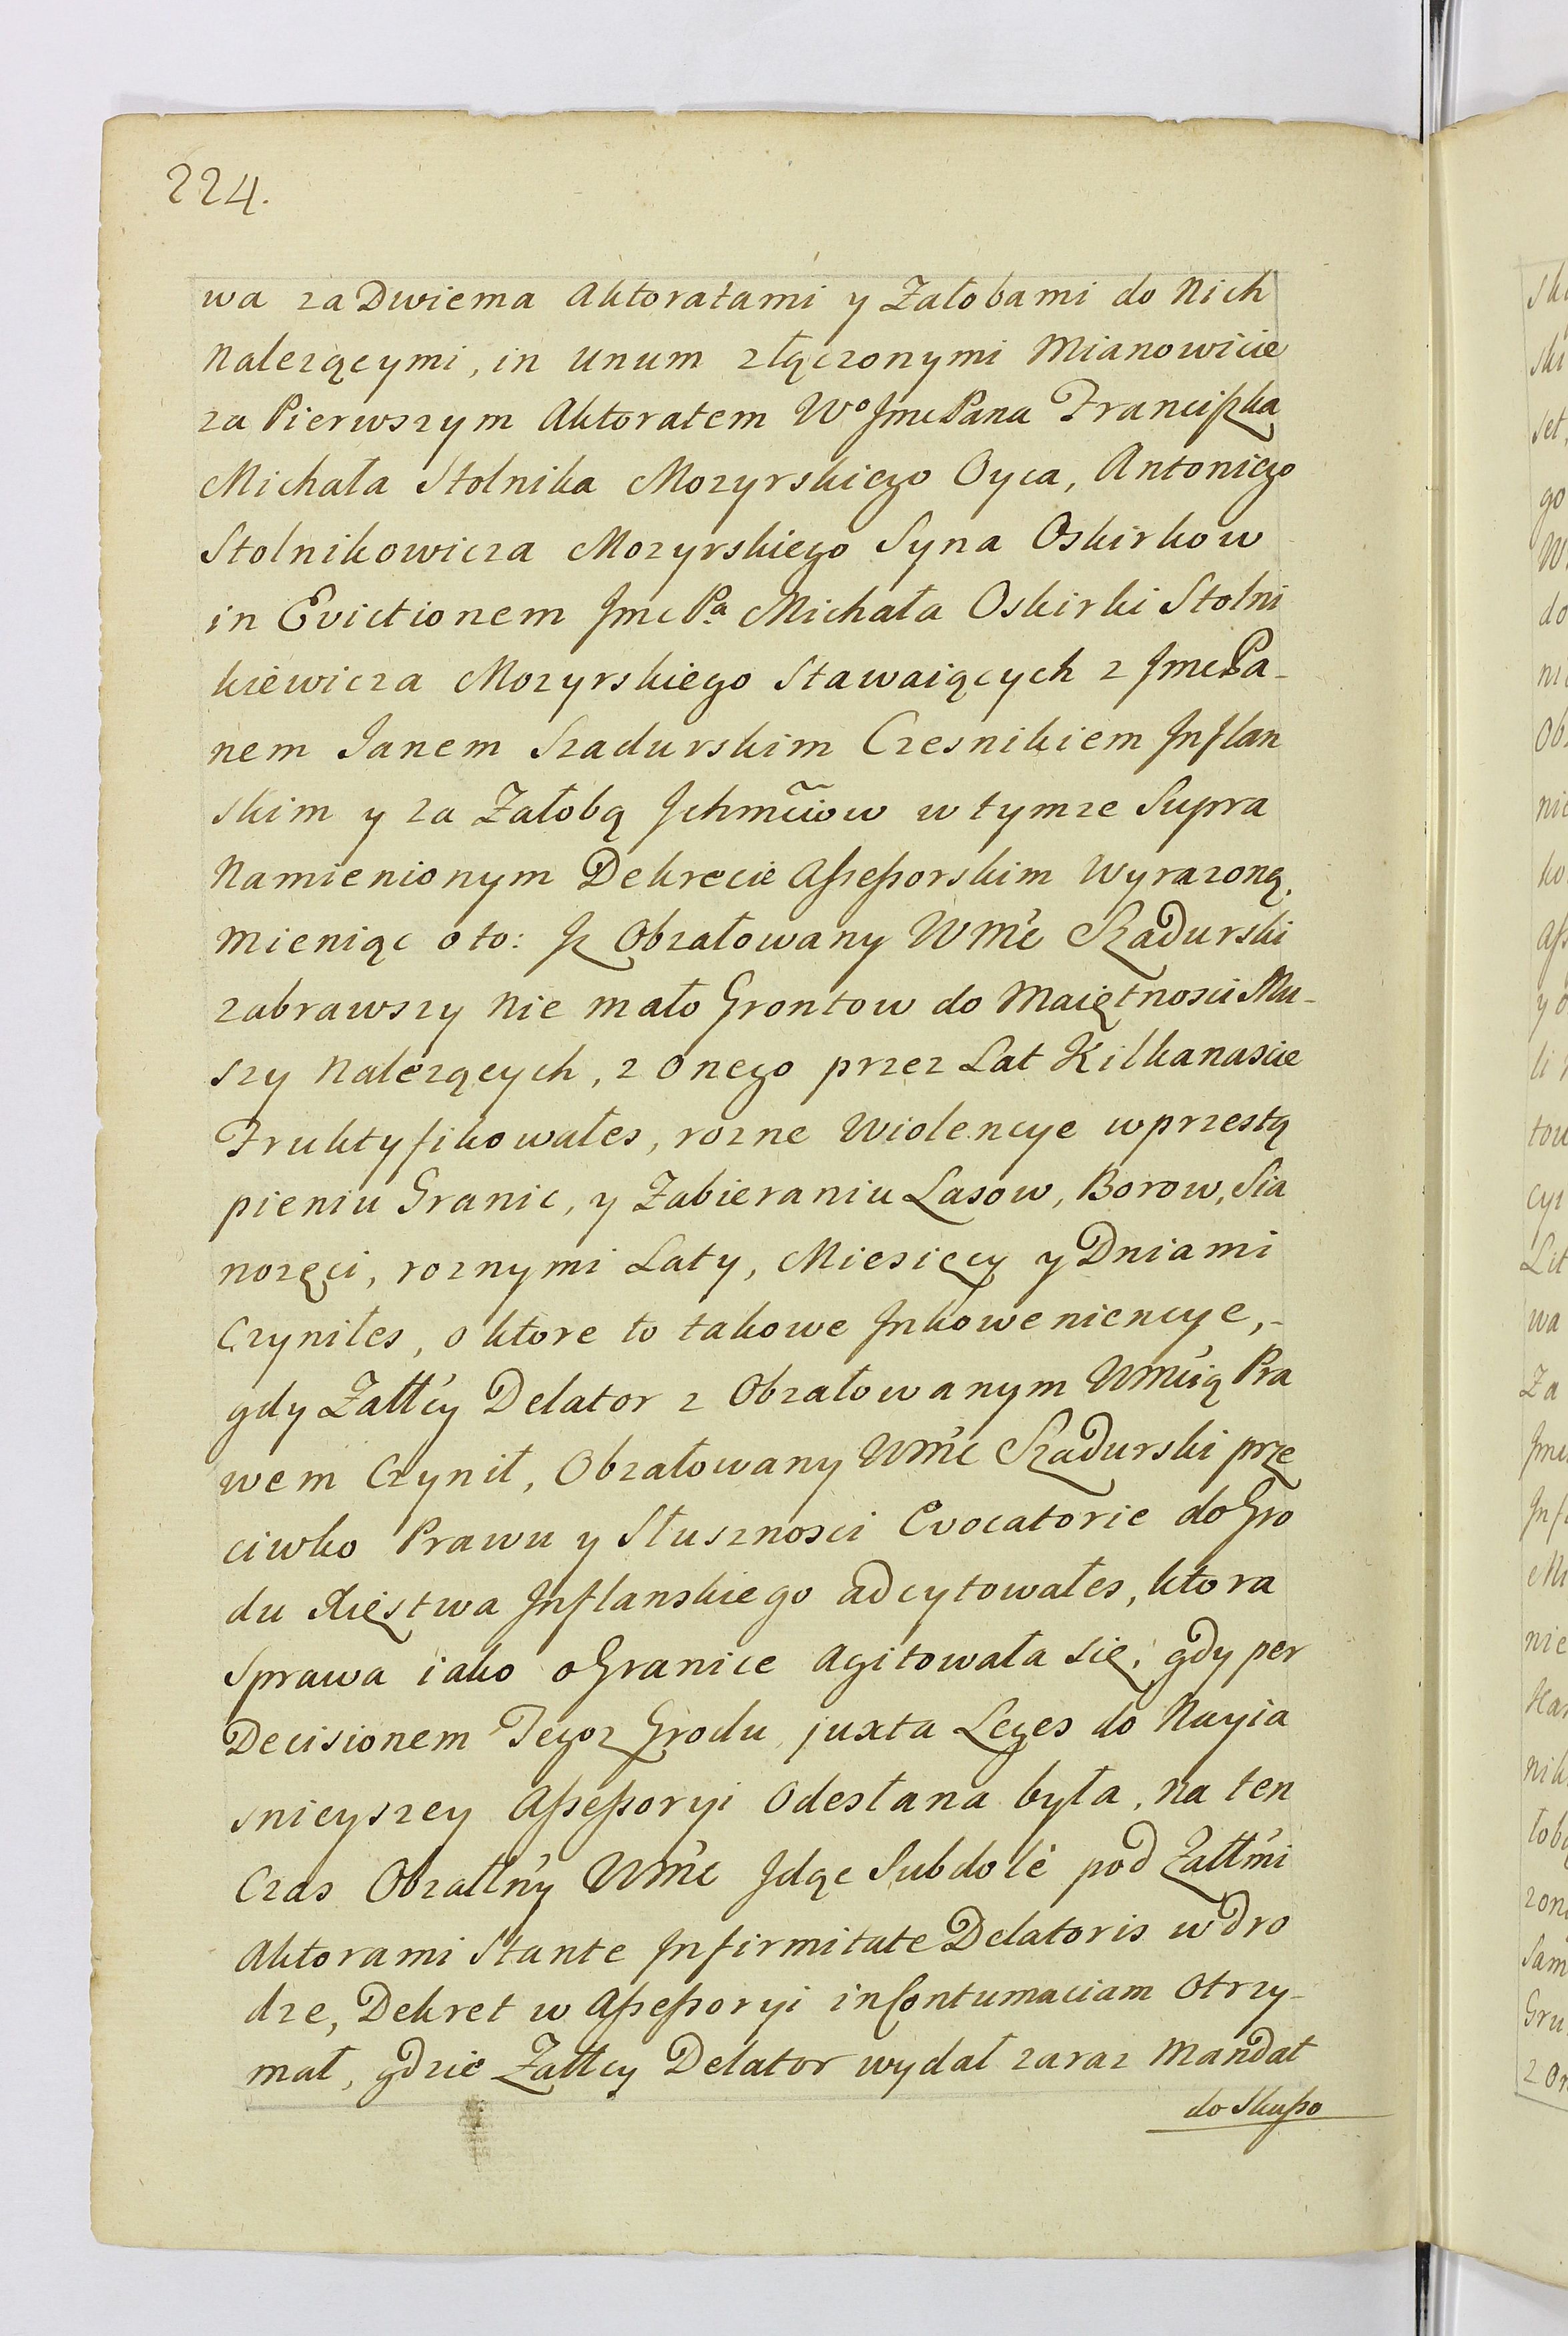 224.
wa za Dwiema Aktoratami y Załobami do Nich
Nalezącymi, in Unum złączonymi Mianowicie
za Pierwszym Aktoratem Wo Jmc Pana Franciszka
Michała Stolnika Mozyrskiego Oyca, Antoniego
Stolnikowicza Mozyrskiego Syna Oskirkow
in Evictionem Jmc Pa Michała Oskirki Stolni
kiewicza Mozyrskiego Stawaiących z Jmc Pa-
nem Janem Szadurskim Czesnikiem Jnflan
skim y za Załobą Jchmciow w tymze Supra
Namienionym Dekrecie Aßeßorskim Wyrazoną,
Mieniąc o to: Jz Obzałowany WMc Szadurski
zabrawszy Nie mało Grontow do Maiętnosci Mu-
szy Nalezących, z Onego przez Lat Kilkanascie
Fruktyfikowałes, rozne Wiolencye w przestą
pieniu Granic, y Zabieraniu Lasow, Borow, Sia
nozęci, roznymi Laty, Miesięcy y Dniami
Czyniłes, o ktore to takowe Jnkowenienc­ye,-
gdy Załłcy Delator z Obzałowanym WMcią Pra
wem Czynił, Obzałowany WMc Szadurski prze
ciwko Prawu y Słusznosci Evocatorie do Gro
du Xięstwa Jnflanskiego adcytowałes, ktora
Sprawa iako o Granice Agitowała się, gdy per
Decisionem Tegoz Grodu, juxta Leges do Nayia
snieyszey Aßeßoryi Odesłana była, Na ten
Czas Obzałłny WMc Jdąc Subdole pod Załłmi
Aktorami Stante Jnfirmitate Delatoris w dro
dze, Dekret w Aßeßoryi in Contumaciam Otrzy-
mał, gdzie Załłcy Delator wydał zaraz Mandat
do Skußo